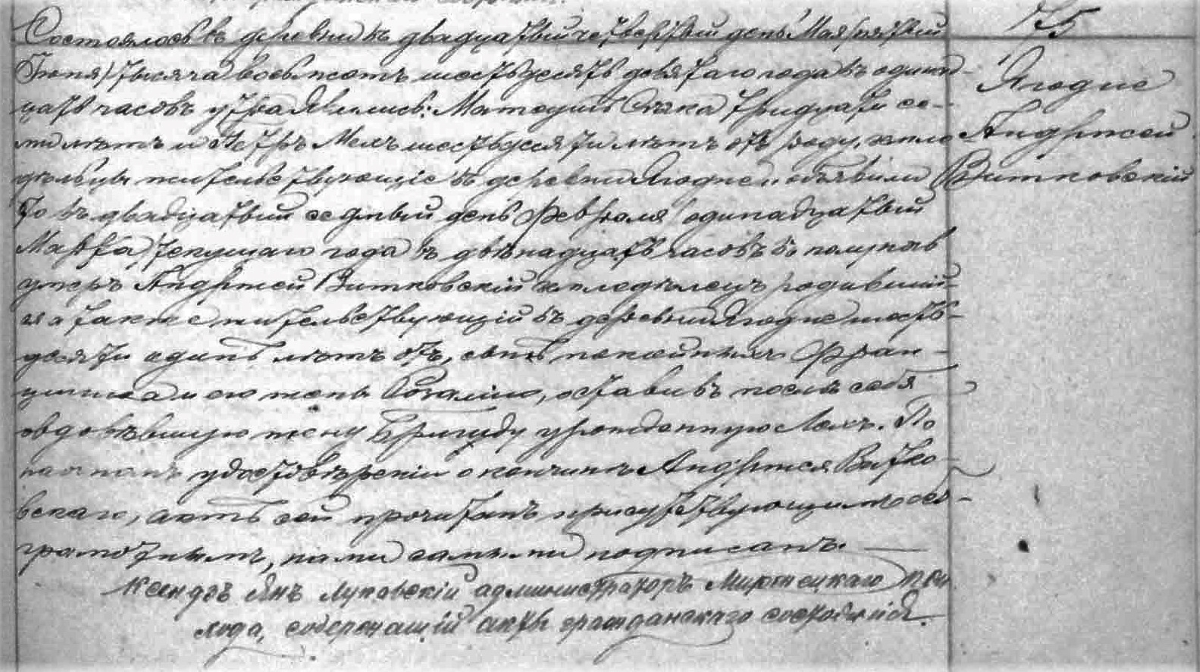 Состоялось въ деревни въ двадцатый четвертый день Мая (пятый
Іюня) тысяча восемьсотъ шестьдесятъ девятаго года въ один-
цать часовъ утра. Явились: Матеушъ тридцати се-
ми лѣтъ и Петръ Мель шестьдесяти лѣтъ отъ роду, хлѣбо
дѣльцы жительствующіе въ деревни Ягодне и объявили
то въ двадцатый седьмый день Февраля (одинадцатый
Марта) текущаго года въ двѣнадцать часовъ въ полуночь
умеръ Анджей Витковскій хлѣбодѣлецъ родившій-
ся а также жительствующій въ деревни Ягодне шесть-
десяти одинъ лѣтъ отъ, сынъ покойныхъ Фран-
цишка и его жены Розаліи, оставивъ послѣ себя
овдовѣвшую жену Бригиду урожденную Мель. По
настномъ удостовѣреніи о кончинѣ Анджея Витко-
вскаго, актъ сей прочитанъ присутствующимъ
грамотнымъ, нами самыми подписанъ.
Ксендзъ Янъ Луковскій администраторъ при
хода, содержащій акты гражданскаго состоянія.
75
Ягодне
Анджей
Витковскій